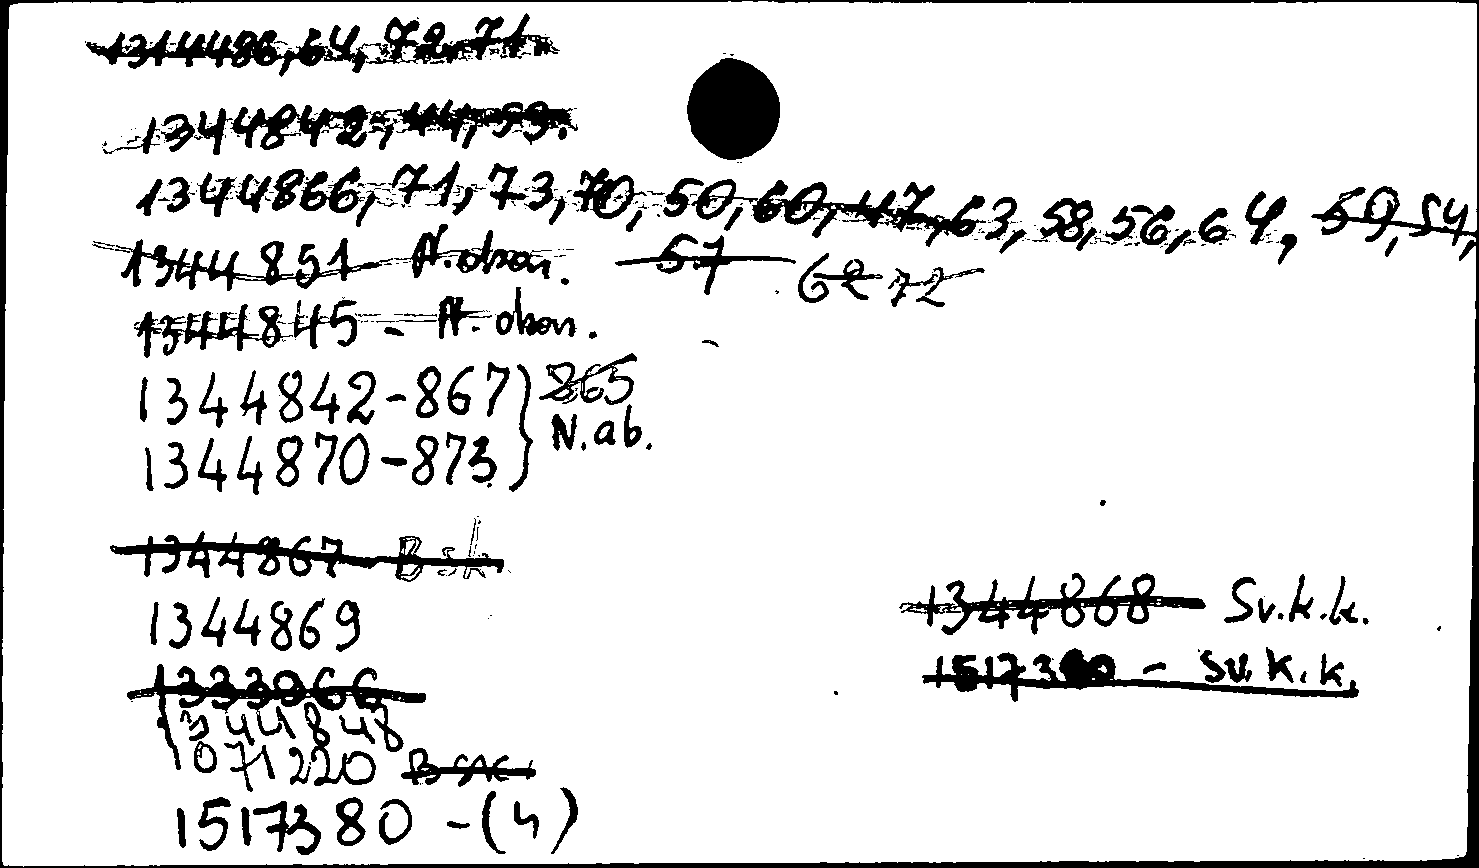 1314486, 64, 72, 71.
1344842, 44, 53.
1344866, 71, 73, 70, 50, 60, 47, 63, 58, 56, 64, 59, 54,
1344851 57 62 72
1344845 -
1344842-867 } 865
1344870-873 } N.ab.
1344867 B sk.
1344869
1344868 Sv.k.k.
1333066
1517380 - Sv.k.k.
1344848
1071220
1517380 - (4)